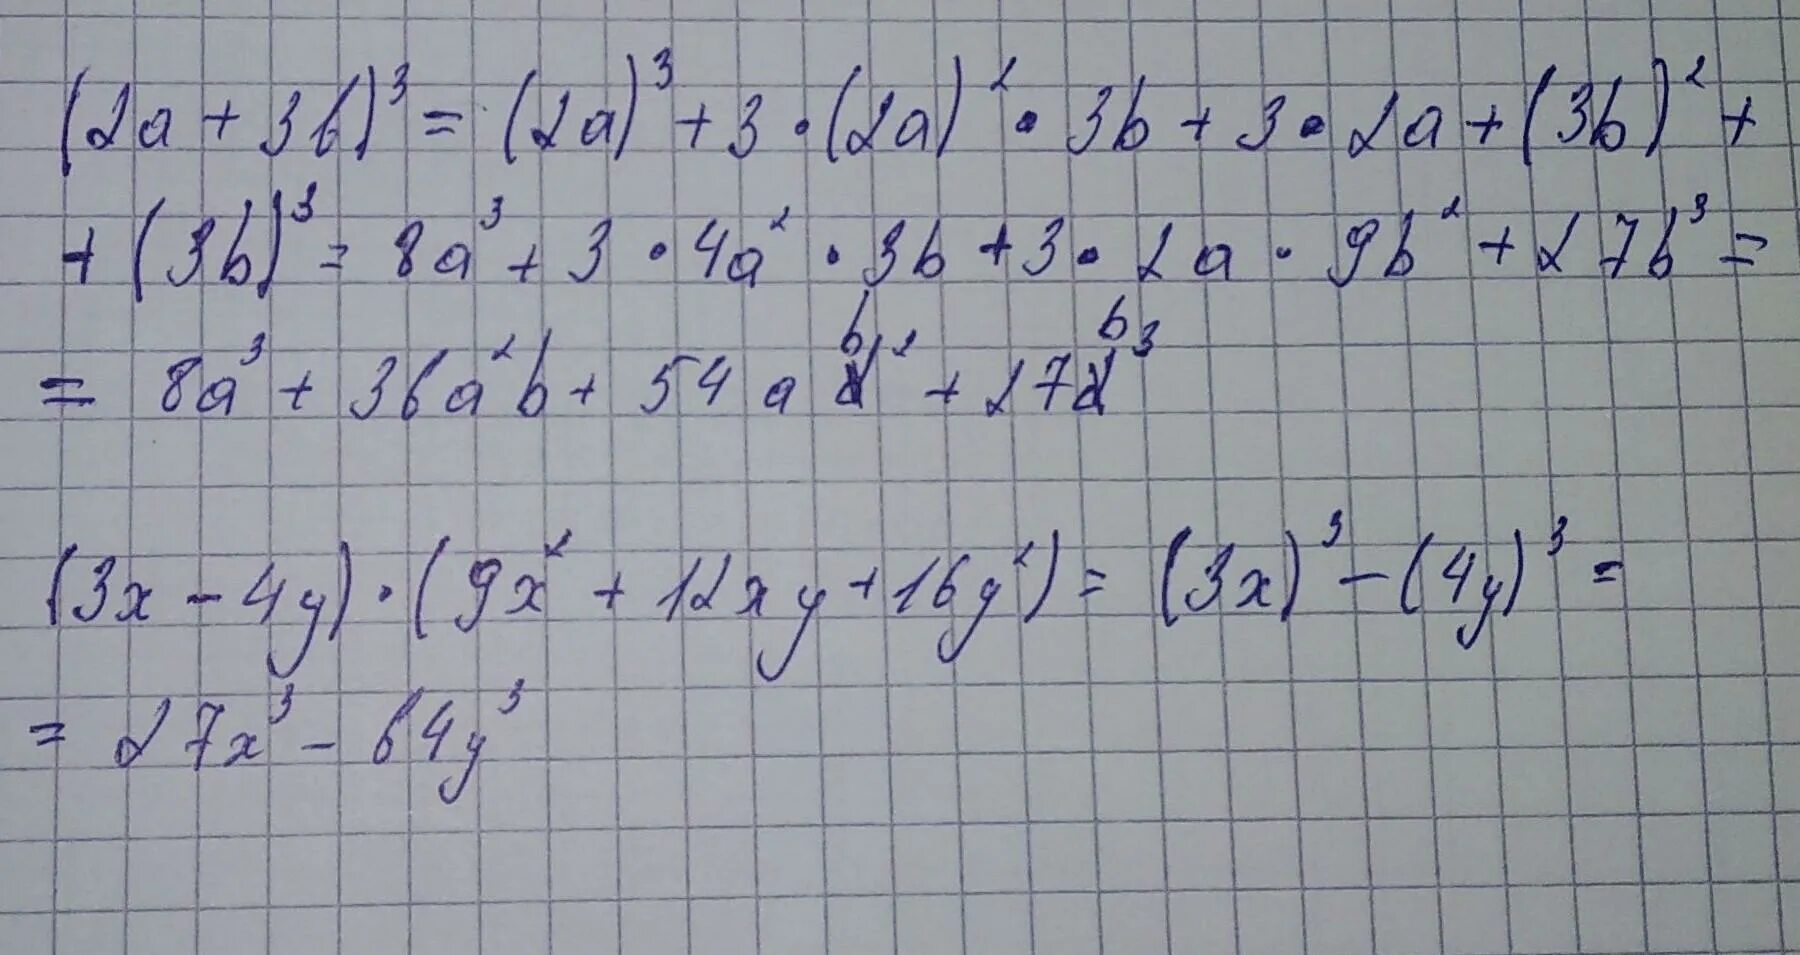 (2a + 3b)³ = (2a)³ + 3 · (2a)² · 3b + 3 · 2a + (3b)² +
+ (3b)³ = 8a³ + 3 · 4a² · 3b + 3 · 2a · 9b² + 27b³ =
= 8a³ + 36a²b + 54ab² + 27b³
(3x - 4y) · (9x² + 12xy + 16y²) = (3x)³ - (4y)³ =
= 27x³ - 64y³